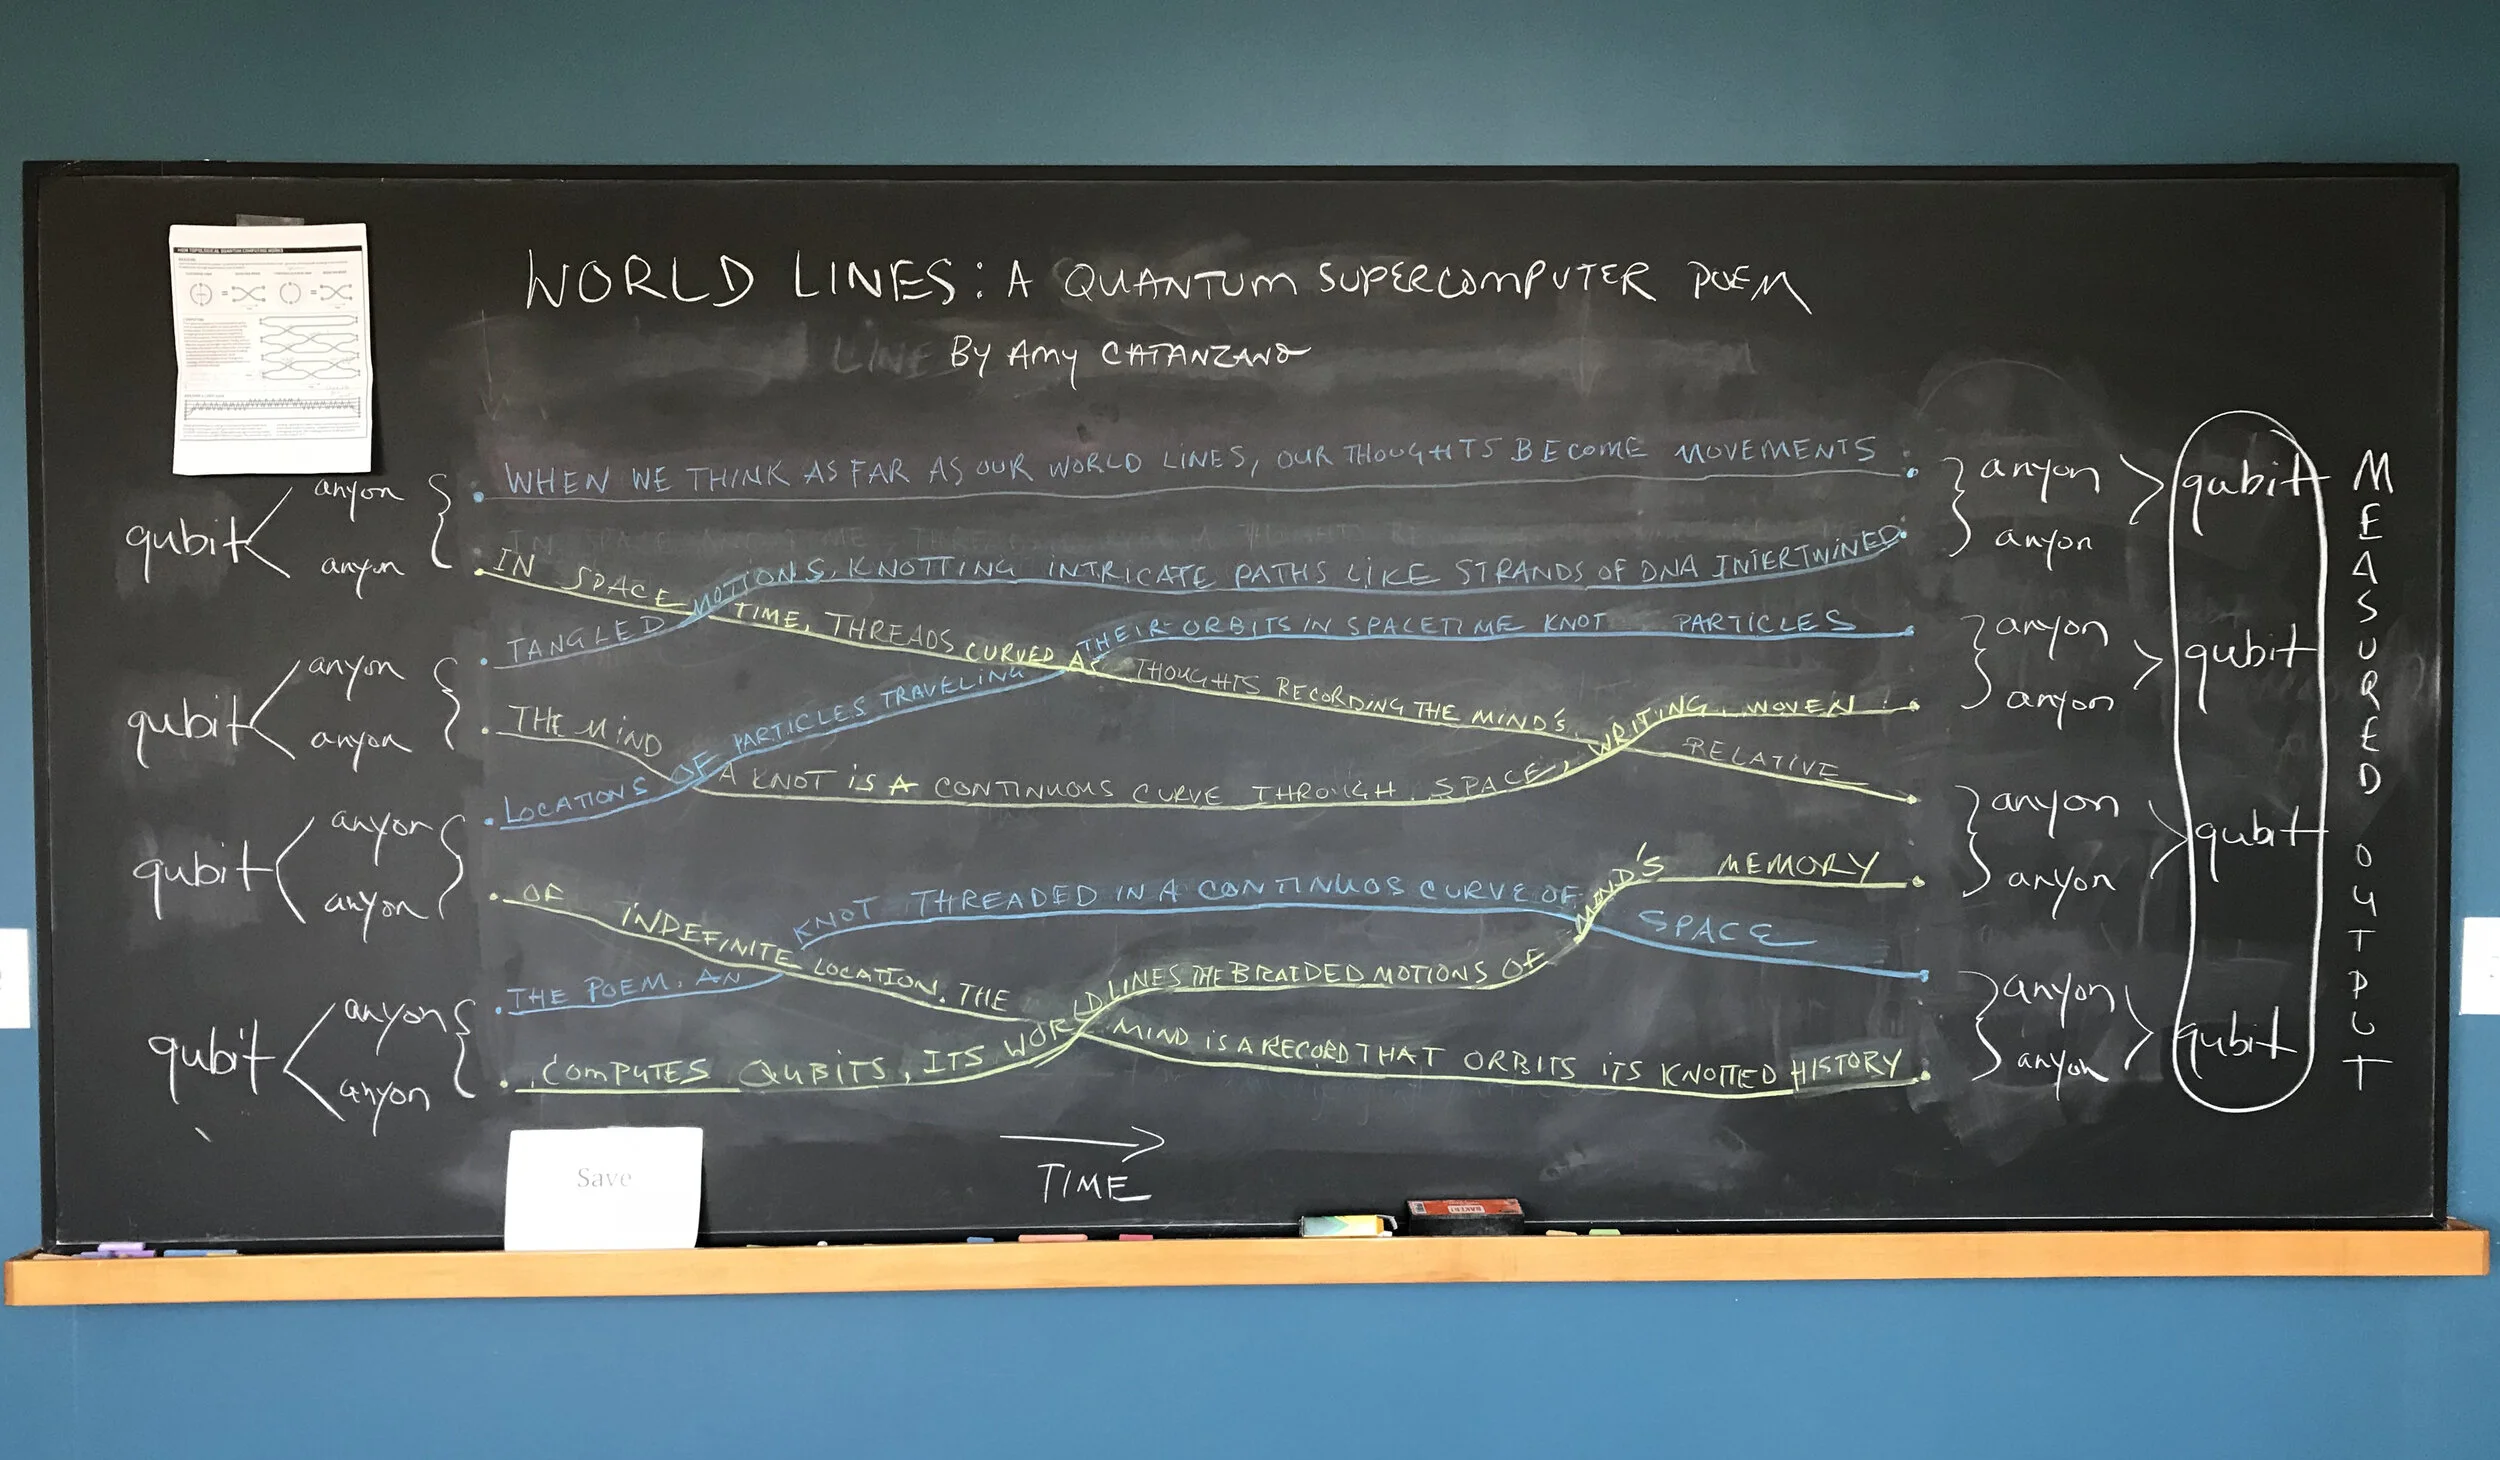 HOW TOPOLOGICAL QUANTUM COMPUTING WORKS
WORLD LINES: A QUANTUM SUPERCOMPUTER POEM
BY AMY CATANZANO
qubit
anyon
anyon
qubit
anyon
anyon
qubit
anyon
anyon
qubit
anyon
anyon
WHEN WE THINK AS FAR AS OUR WORLD LINES, OUR THOUGHTS BECOME MOVEMENTS
IN SPACE TIME, THREADS CURVED AS THOUGHTS RECORDING THE MIND'S RELATIVE
TANGLED MOTIONS, KNOTTING INTRICATE PATHS LIKE STRANDS OF DNA INTERTWINED
THE MIND A KNOT IS A CONTINUOUS CURVE THROUGH SPACE, WRITING, WOVEN
LOCATIONS OF PARTICLES TRAVELING THEIR ORBITS IN SPACETIME KNOT PARTICLES
OF INDEFINITE LOCATION. THE MIND IS A RECORD THAT ORBITS ITS KNOTTED HISTORY
THE POEM, AN KNOT THREADED IN A CONTINUOS CURVE OF SPACE
COMPUTES QUBITS, ITS WORLDLINES THE BRAIDED MOTIONS OF MIND'S MEMORY
anyon
anyon
qubit
anyon
anyon
qubit
anyon
anyon
qubit
anyon
anyon
qubit
MEASURED OUTPUT
TIME
Save